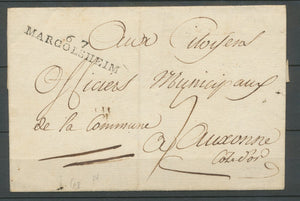 Aux Citoisens
67
MARGOLSHEIM
Officiers Municipaux
de la Commune
a auxonne
Cote d'or